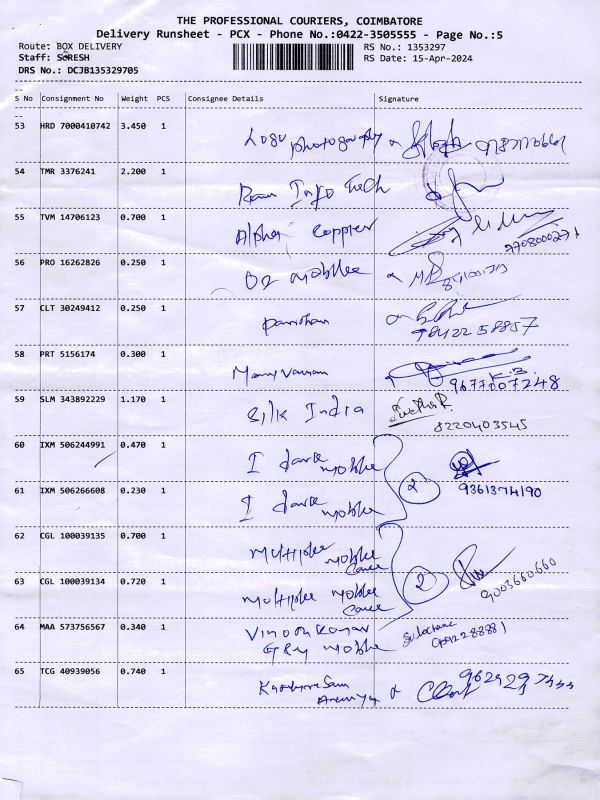 THE PROFESSIONAL COURIERS, COIMBATORE
Delivery Runsheet - PCX - Phone No.:0422-3505555 - Page No.:5
Route: BOX DELIVERY RS No.: 1353297
Staff: SURESH RS Date: 15-Apr-2024
DRS No.: DCJB135329705
S No Consignment No Weight PCS Consignee Details Signature
53 HRD 7000410742 3.450 1 Logu photography
54 TMR 3376241 2.200 1 Ram Info Tech
55 TVM 14706123 0.700 1 Alpha Coppier 7708000271
56 PRO 16262826 0.250 1 O2 mobile
57 CLT 30249412 0.250 1 9842258857
58 PRT 5156174 0.300 1 K.B.
9677807248
59 SLM 343892229 1.170 1 Silk India
8220403545
60 IXM 506244991 0.470 1 I dark mobile
2 9361374190
61 IXM 506266608 0.230 1 I dark mobile
62 CGL 100039135 0.700 1 Multiple mobile care
2 9003660660
63 CGL 100039134 0.720 1 Multiple mobile care
64 MAA 573756567 0.340 1 Vinoth Kumar
mobile
65 TCG 40939056 0.740 1